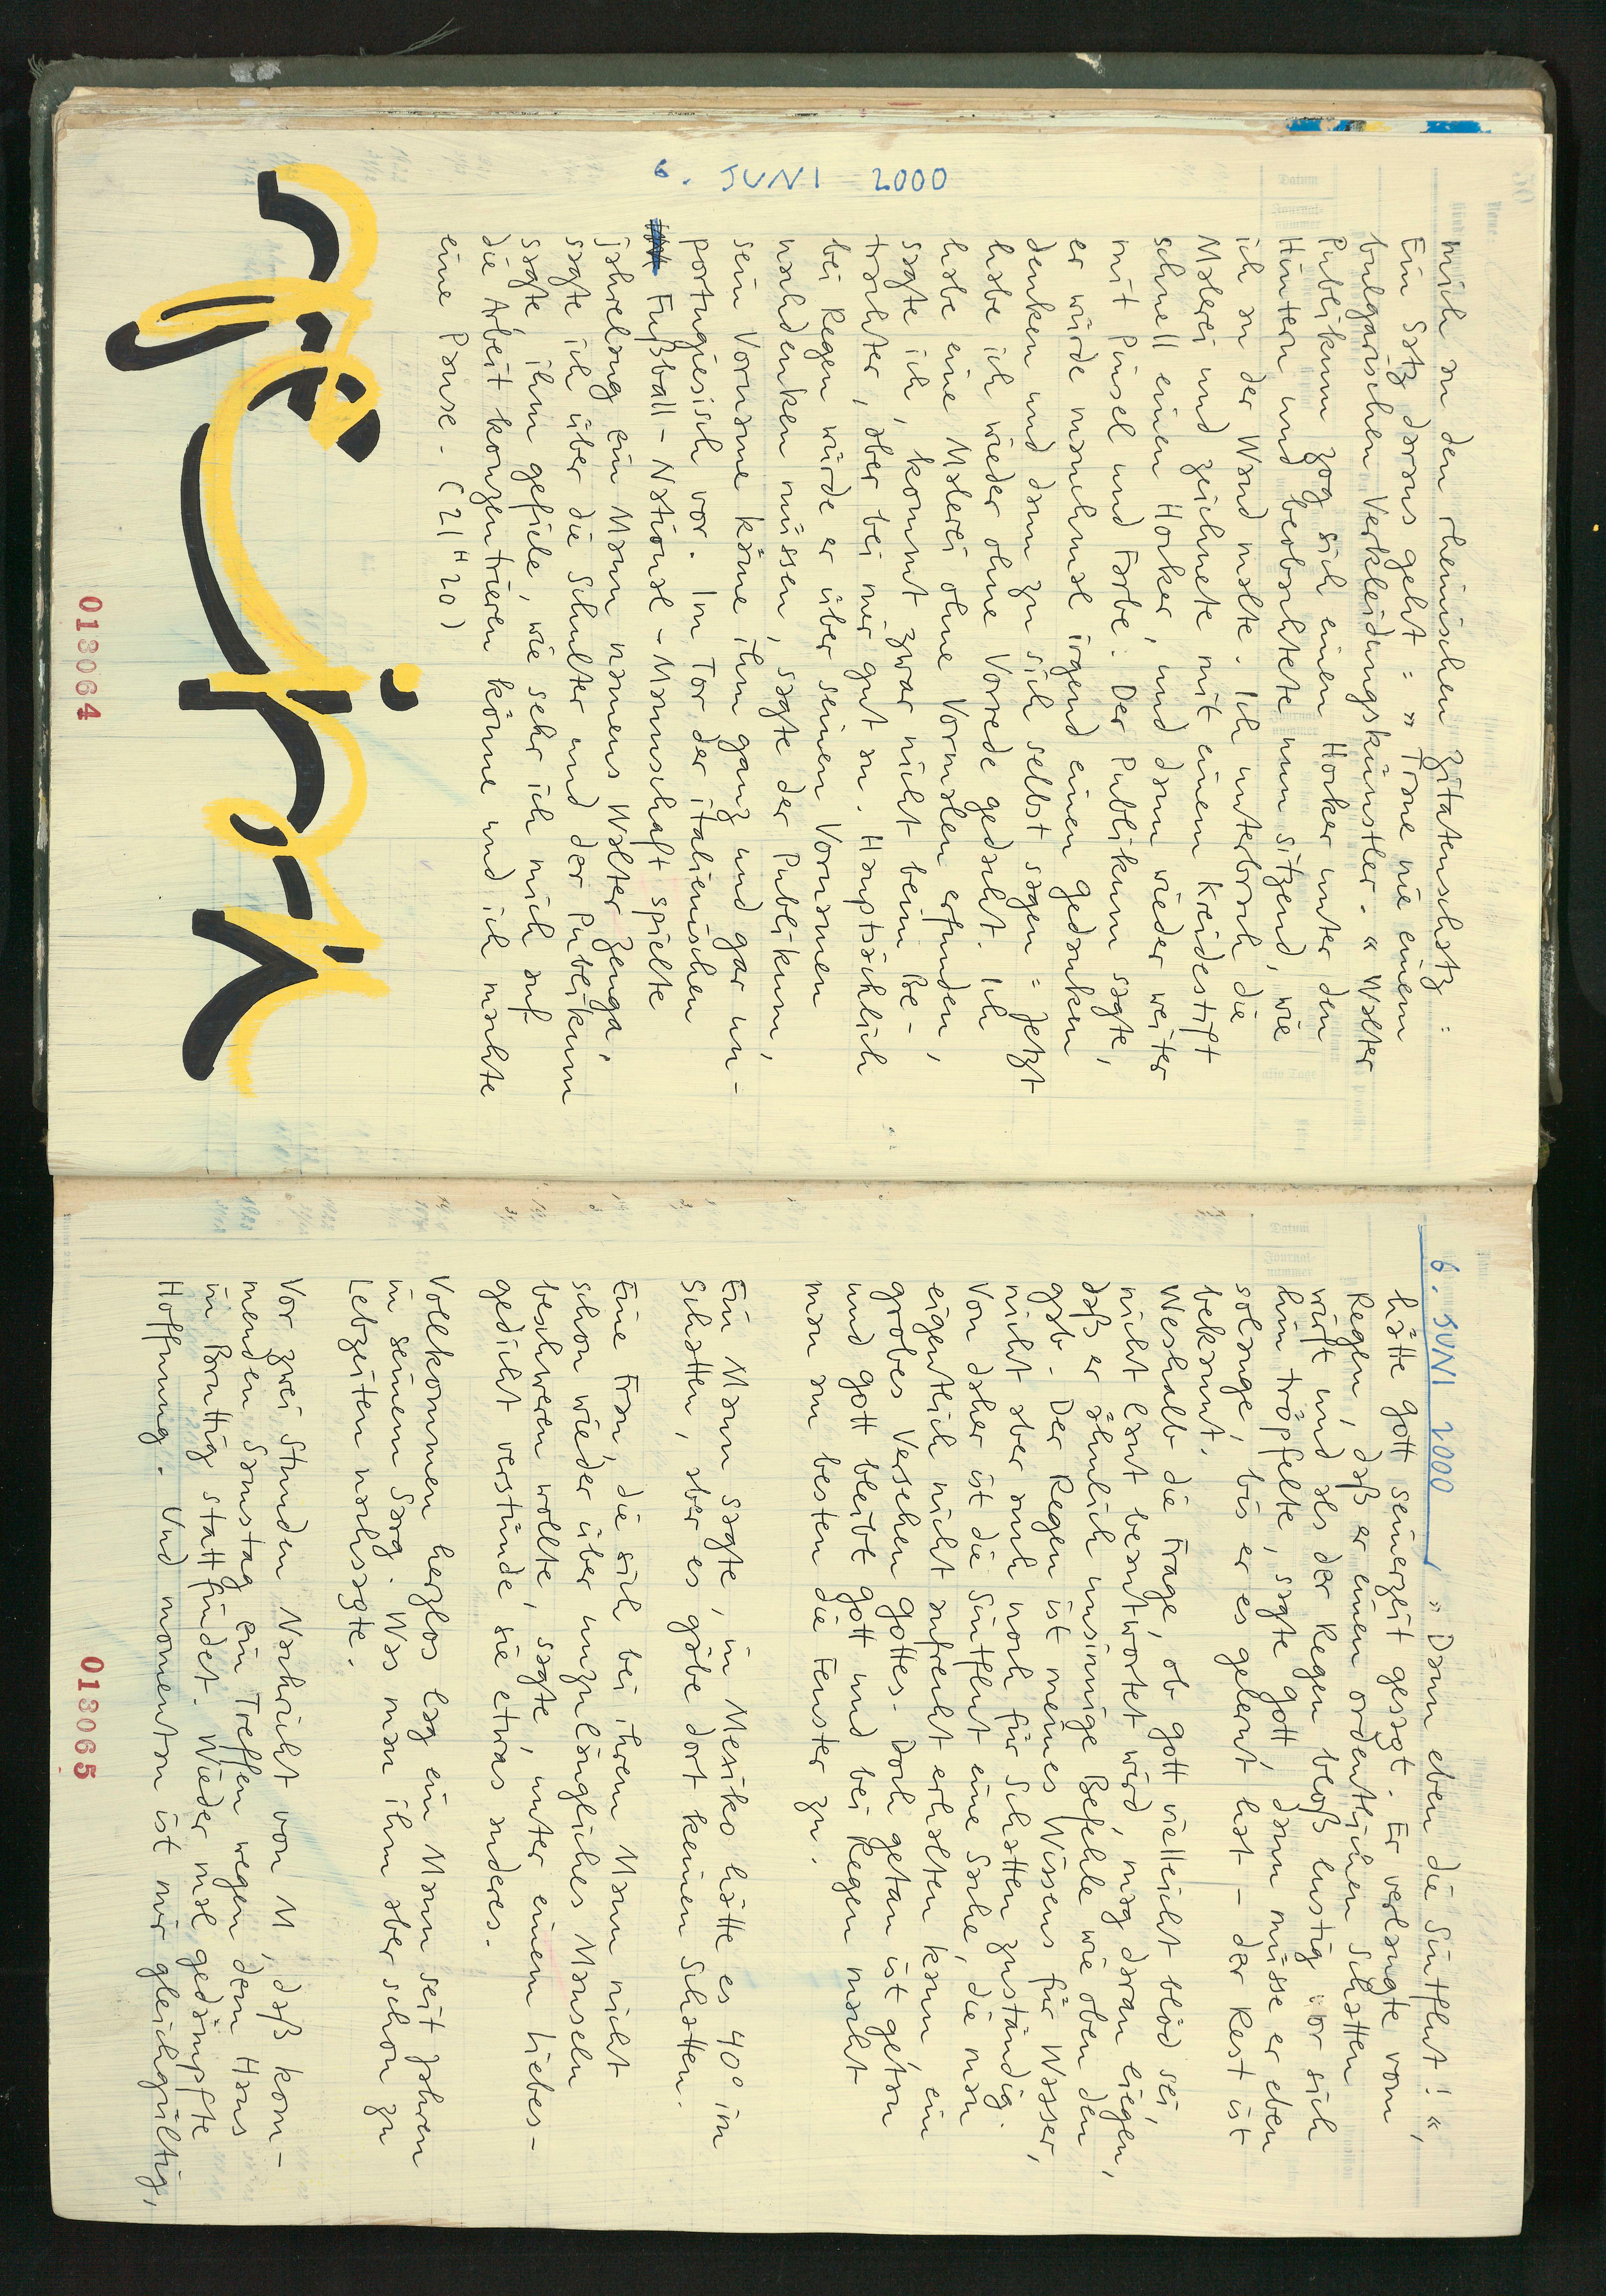 6. JUNI 2000
mich an den rheinischen Zitatenschatz:
Ein Satz daraus geht: „Traue nie einem
bulgarischen Verkleidungskünstler.“ Walter
Publikum zog sich einen Hocker unter den
Hintern und beobachtete nun sitzend, wie
ich an der Wand malte. Ich unterbrach die
Malerei und zeichnete mit einem Kreidestift
schnell einen Hocker, und dann wieder weiter
mit Pinsel und Farbe. Der Publikum sagte,
er würde manchmal irgend einen Gedanken
denken und dann zu sich selbst sagen: Jetzt
habe ich wieder ohne Vorrede gedacht. Ich
habe eine Malerei ohne Vormalen erfunden,
sagte ich, kommt zwar nicht beim Be-
trachter, aber bei mir gut an. Hauptsächlich
bei Regen würde er über seinen Vornamen
nachdenken müssen, sagte der Publikum,
sein Vorname käme ihm ganz und gar un-
portugiesisch vor. Im Tor der italienischen
Fußball-National-Mannschaft spielte
jahrelang ein Mann namens Walter Zenga,
sagte ich über die Schulter und der Publikum
sagte, ihm gefiele, wie sehr ich mich auf
die Arbeit konzentrieren könne und ich machte
eine Pause. (21H20)
018064
6. JUNI 2000 „Dann eben die Sintflut!“,
hätte Gott seinerzeit gesagt. Er verlangte vom
Regen, daß er einen ordentlichen Schatten
wirft und als der Regen bloß lustig vor sich
hin tröpfelte, sagte Gott, dann müsse er eben
solange, bis er es gelernt hat – der Rest ist
bekannt.
Weshalb die Frage, ob Gott vielleicht blöd sei,
nicht laut beantwortet wird, mag daran liegen,
daß er ähnlich unsinnige Befehle wie oben den
gab. Der Regen ist meines Wissens für Wasser,
nicht aber auch noch für Schatten zuständig.
Von daher ist die Sintflut eine Sache, die man
eigentlich nicht aufrecht erhalten kann, ein
grobes Versehen Gottes. Doch getan ist getan
und Gott bleibt Gott und bei Regen macht
man am besten die Fenster zu.
Ein Mann sagte, in Mexiko hätte es 40° im
Schatten, aber es gäbe dort keinen Schatten.
Eine Frau, die sich bei ihrem Mann nicht
schon wieder über unzulängliches Mauscheln
beschweren wollte, sagte, unter einem Liebes-
gedicht verstünde sie etwas anderes.
Vollkommen herzlos lag ein Mann seit Jahren
in seinem Sarg. Was man ihm aber schon zu
Lebzeiten nachsagte.
Vor zwei Stunden Nachricht von M, daß kom-
menden Samstag ein Treffen wegen dem Haus
in Bruttig stattfindet. Wieder mal gedämpfte
Hoffnung. Und momentan ist mir gleichgültig,
018065